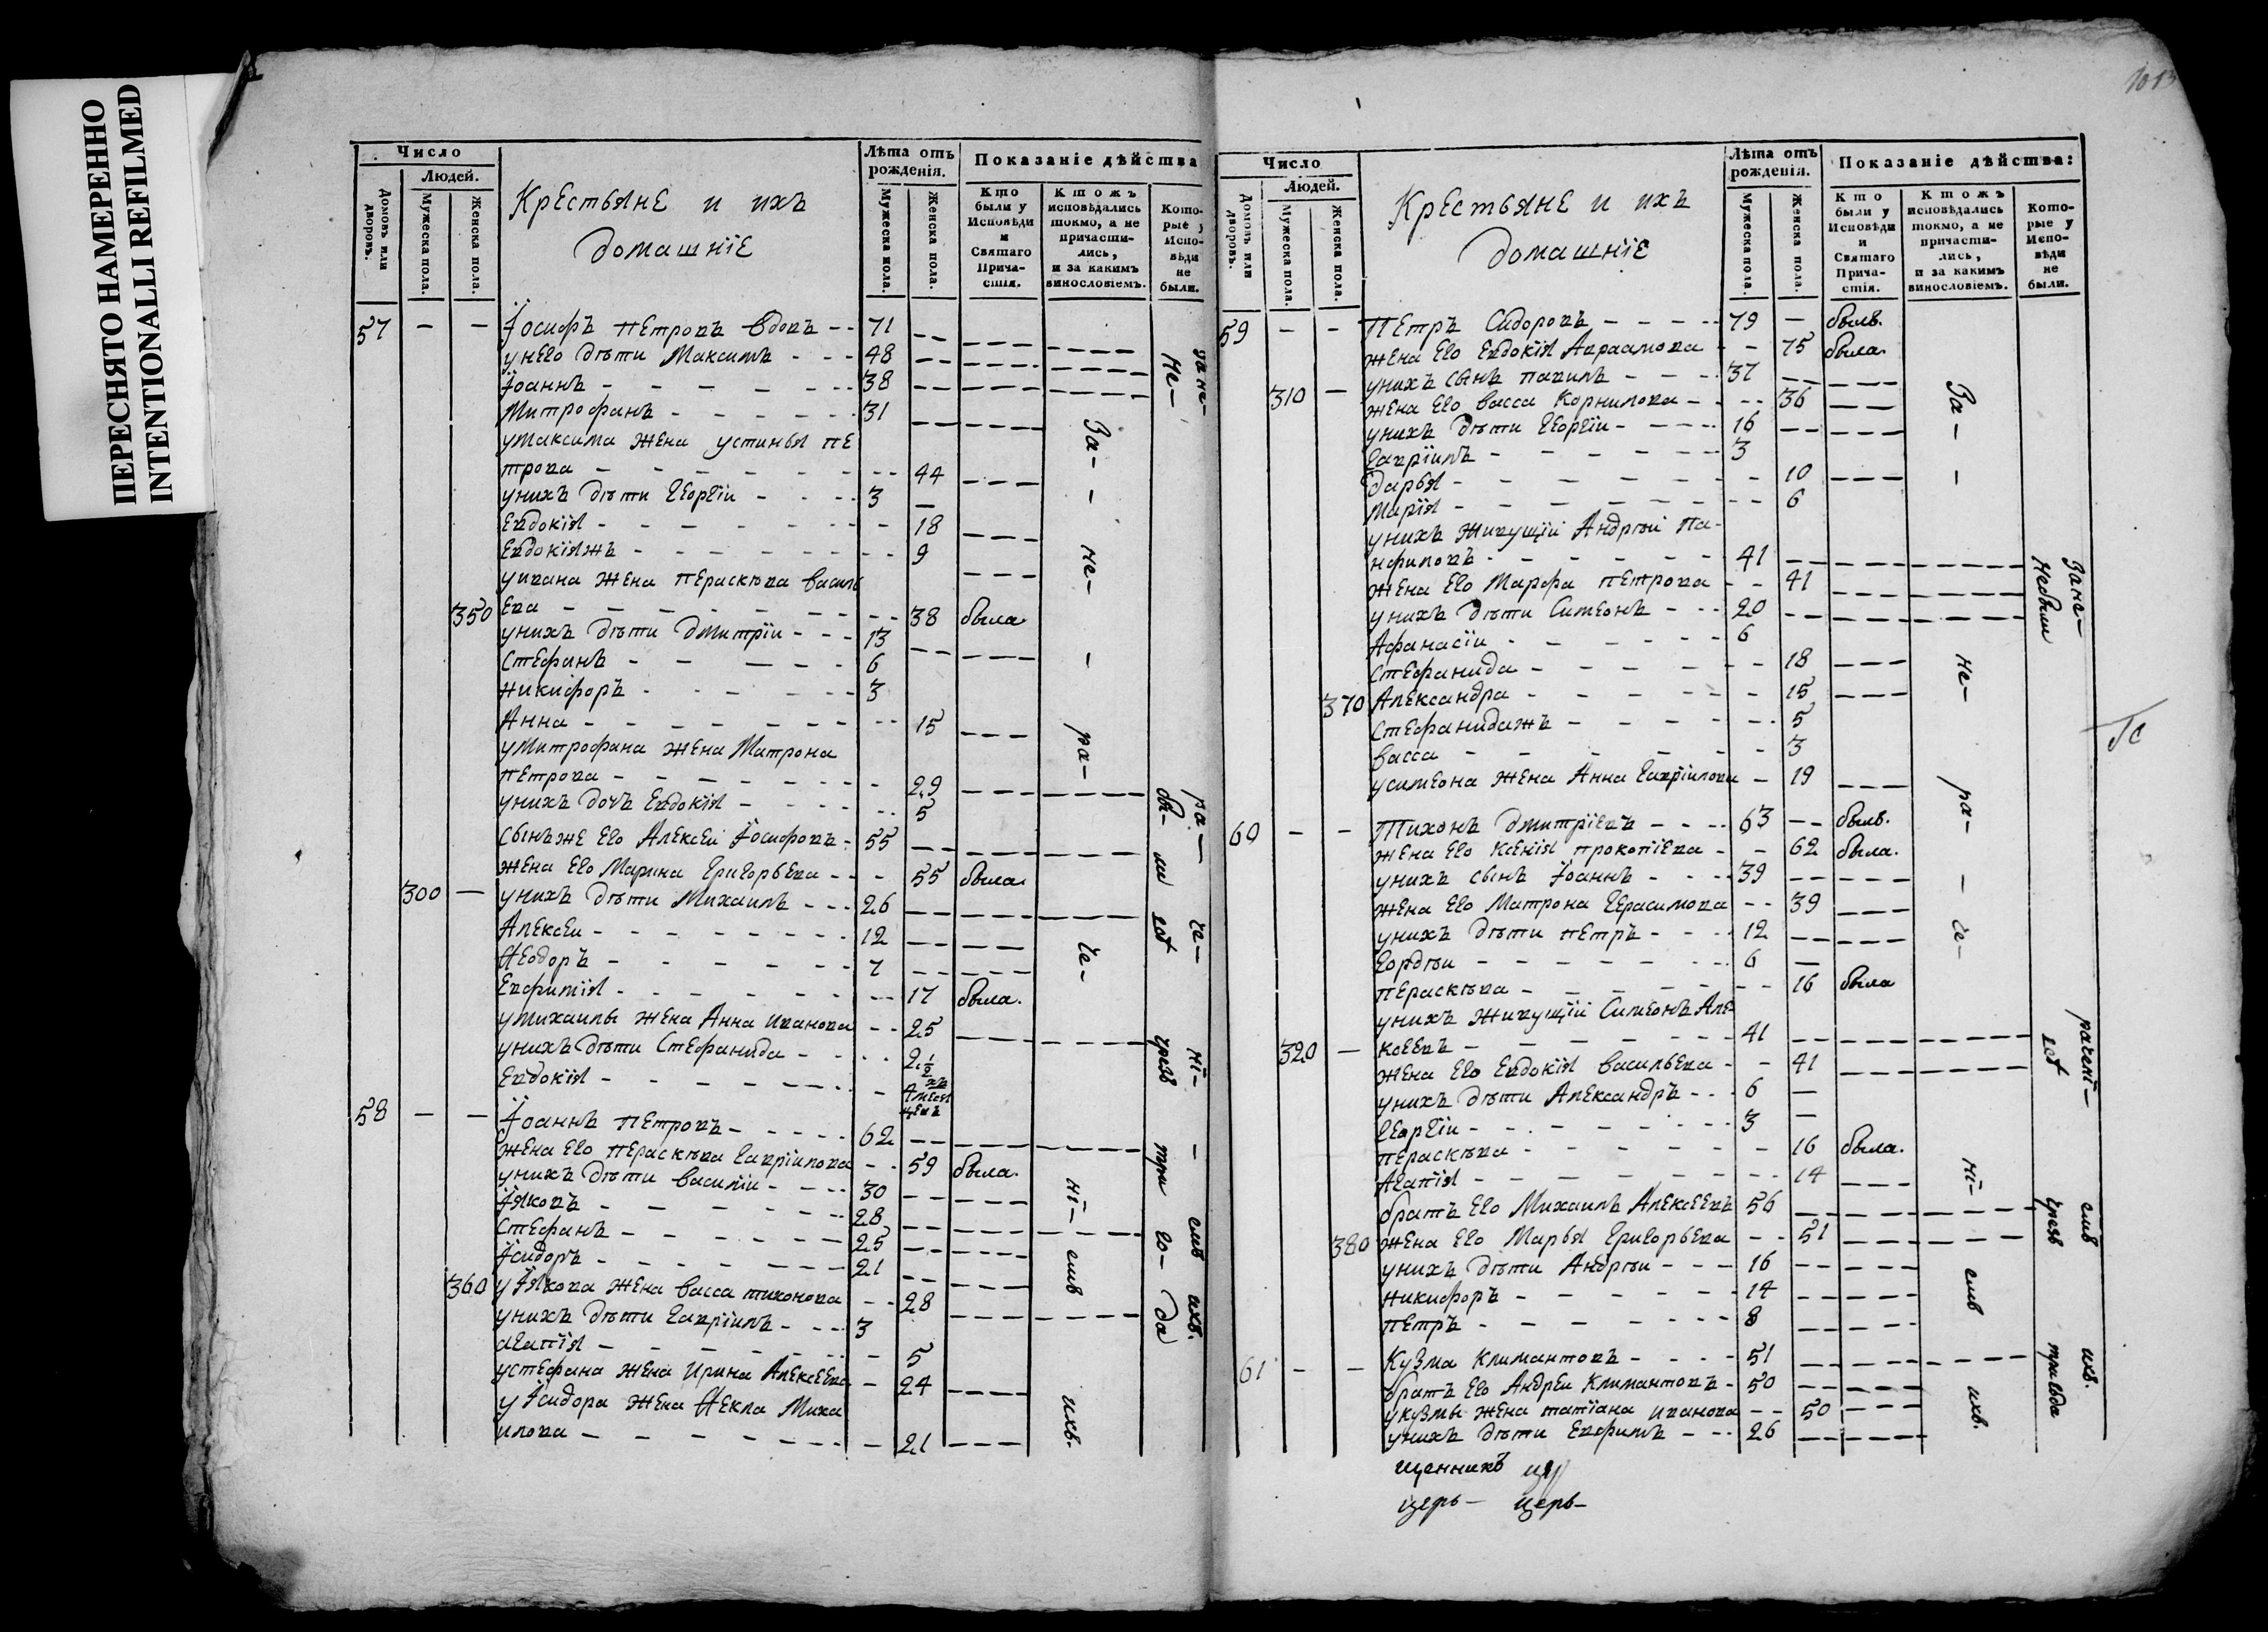 ПЕРЕСНЯТО НАМЕРЕННО
INTENTIONALLI REFILMED
Число
Людей.
Домовъ или дворовъ.
Мужеска пола.
Женска пола.
Крестьяне и ихъ
домашніе
Лѣта отъ рожденія.
Мужеска пола.
Женска пола.
Показаніе дѣйства
Кто были у Исповѣди и Святаго Прича-стія.
Ктожъ исповѣдались токмо, а не причасти-лись, и за какимъ винословіемъ.
Кото-рые у Испо-вѣди не были.
57 — — Іосифъ Петровъ вдовъ - - 71
у него дѣти Максимъ - - - 48
Іоаннъ - - - - - - 38
Митрофанъ - - - - - - 31
у Максима жена Устинья Пе
трова - - - - - - 44
у нихъ дѣти Георгіи - - - 3 —
Евдокія - - - - - - 18
Евдокіяжъ - - - - - - 9
у Ивана жена Параскѣва Василь
350 ева - - - - - - 38 была
у нихъ дѣти Дмитріи - - - 13
Стефанъ - - - - - 6
Никифоръ - - - - - - 3
Анна - - - - - - - 15
у Митрофана жена Матрона
Петрова - - - - - - - 29
у нихъ дочь Евдокія - - - - 5
сынъже его Алексеи Іосифовъ - 55
жена его Марина Григорьева - - - 55 была
300 — у нихъ дѣти Михаилъ - - - 26
Алексеи - - - - - - - 12
Ѳеодоръ - - - - - - 7
Евфимія - - - - - - - 17 была.
у Михаилы жена Анна Иванова - - 25
у нихъ дѣти Стефанида - - - - 2 1/2
Евдокія - - - - - - - 4 месяцевъ
58 — — Іоаннъ Петровъ - - - - - 62
жена его Параскѣва Гавріилова - - 59 была.
у нихъ дѣти Василіи - - - - 30
Іяковъ - - - - - - 28
Стефанъ - - - - - - 25
Ісидоръ - - - - - - - 21
360 у Іякова жена Васса Тихонова - - 28
у нихъ дѣти Гавріилъ - - - 3
Агапія - - - - - - - 5
у Стефана жена Ирина Алексеева - 24
у Ісидора жена Ѳекла Миха
илова - - - - - - - 21
За- - не- - ра- че- ні- емъ ихъ.
Не- бы- ли ей чрезъ три го- да
за не- ра- че- ні- - емъ ихъ.
Число
Людей.
Домовъ или дворовъ.
Мужеска пола.
Женска пола.
Крестьяне и ихъ
домашніе
Лѣта отъ рожденія.
Мужеска пола.
Женска пола.
Показаніе дѣйства:
Кто были у Исповѣди и Святаго Прича-стія.
Ктожъ исповѣдались токмо, а не причасти-лись, и за какимъ винословіемъ.
Кото-рые у Испо-вѣди не были.
59 — - Петръ Сидоровъ - - - - 79 — былъ.
жена его Евдокія Авраамова - - 75 была.
у нихъ сынъ Павилъ - - - 37
310 — жена его Васса Корнилова - - - 36
у нихъ дѣти Георгіи - - - - 16
Гавріилъ - - - - - - 3
Дарья - - - - - - - 10
Марія - - - - - - - 6
у нихъ живущіи Андрѣи Па-
нфиловъ - - - - - - - 41
жена его Марфа Петрова - - 41
у нихъ дѣти Симеонъ - - - 20
Афанасіи - - - - - - 6
Стефанида - - - - - - - 18
370 Александра - - - - - - 15
Стефанидажъ - - - - - - 5
Васса - - - - - - - 3
у Симеона жена Анна Гавріилова — 19
60 — — Тихонъ Дмитріевъ - - - - 63 — былъ.
жена его Ксенія Прокопіева - - 62 была.
у нихъ сынъ Іоаннъ - - - - 39
жена его Матрона Герасимова - - 39
у нихъ дѣти Петръ - - - - 12
Гордѣи - - - - - - - 6 —
Параскѣва - - - - - - - 16 была
у нихъ живущіи Симеонъ Але
320 — ксеевъ - - - - - - - 41
жена его Евдокія Васильева - - 41
у нихъ дѣти Александръ - - - 6 —
Георгіи - - - - - - - 3 —
Параскѣва - - - - - - 16 была.
Агапія - - - - - - - - 14
братъ его Михаилъ Алексеевъ 56
380 жена его Марья Григорьева - - 51
у нихъ дѣти Андрѣи - - - 16
Никифоръ - - - - - - 14
Петръ - - - - - - - 8
61 — — Кузма Климантовъ - - - - 51
братъ его Андреи Климантовъ - 50
у Кузмы жена Татіана Иванова - - 50
у нихъ дѣти Евфимъ - - - 26
За- - - не- ра- - че- ні- емъ ихъ.
Небыли ей чрезъ три года
За не- рачені- емъ ихъ.
щенникъ
церь- церь-